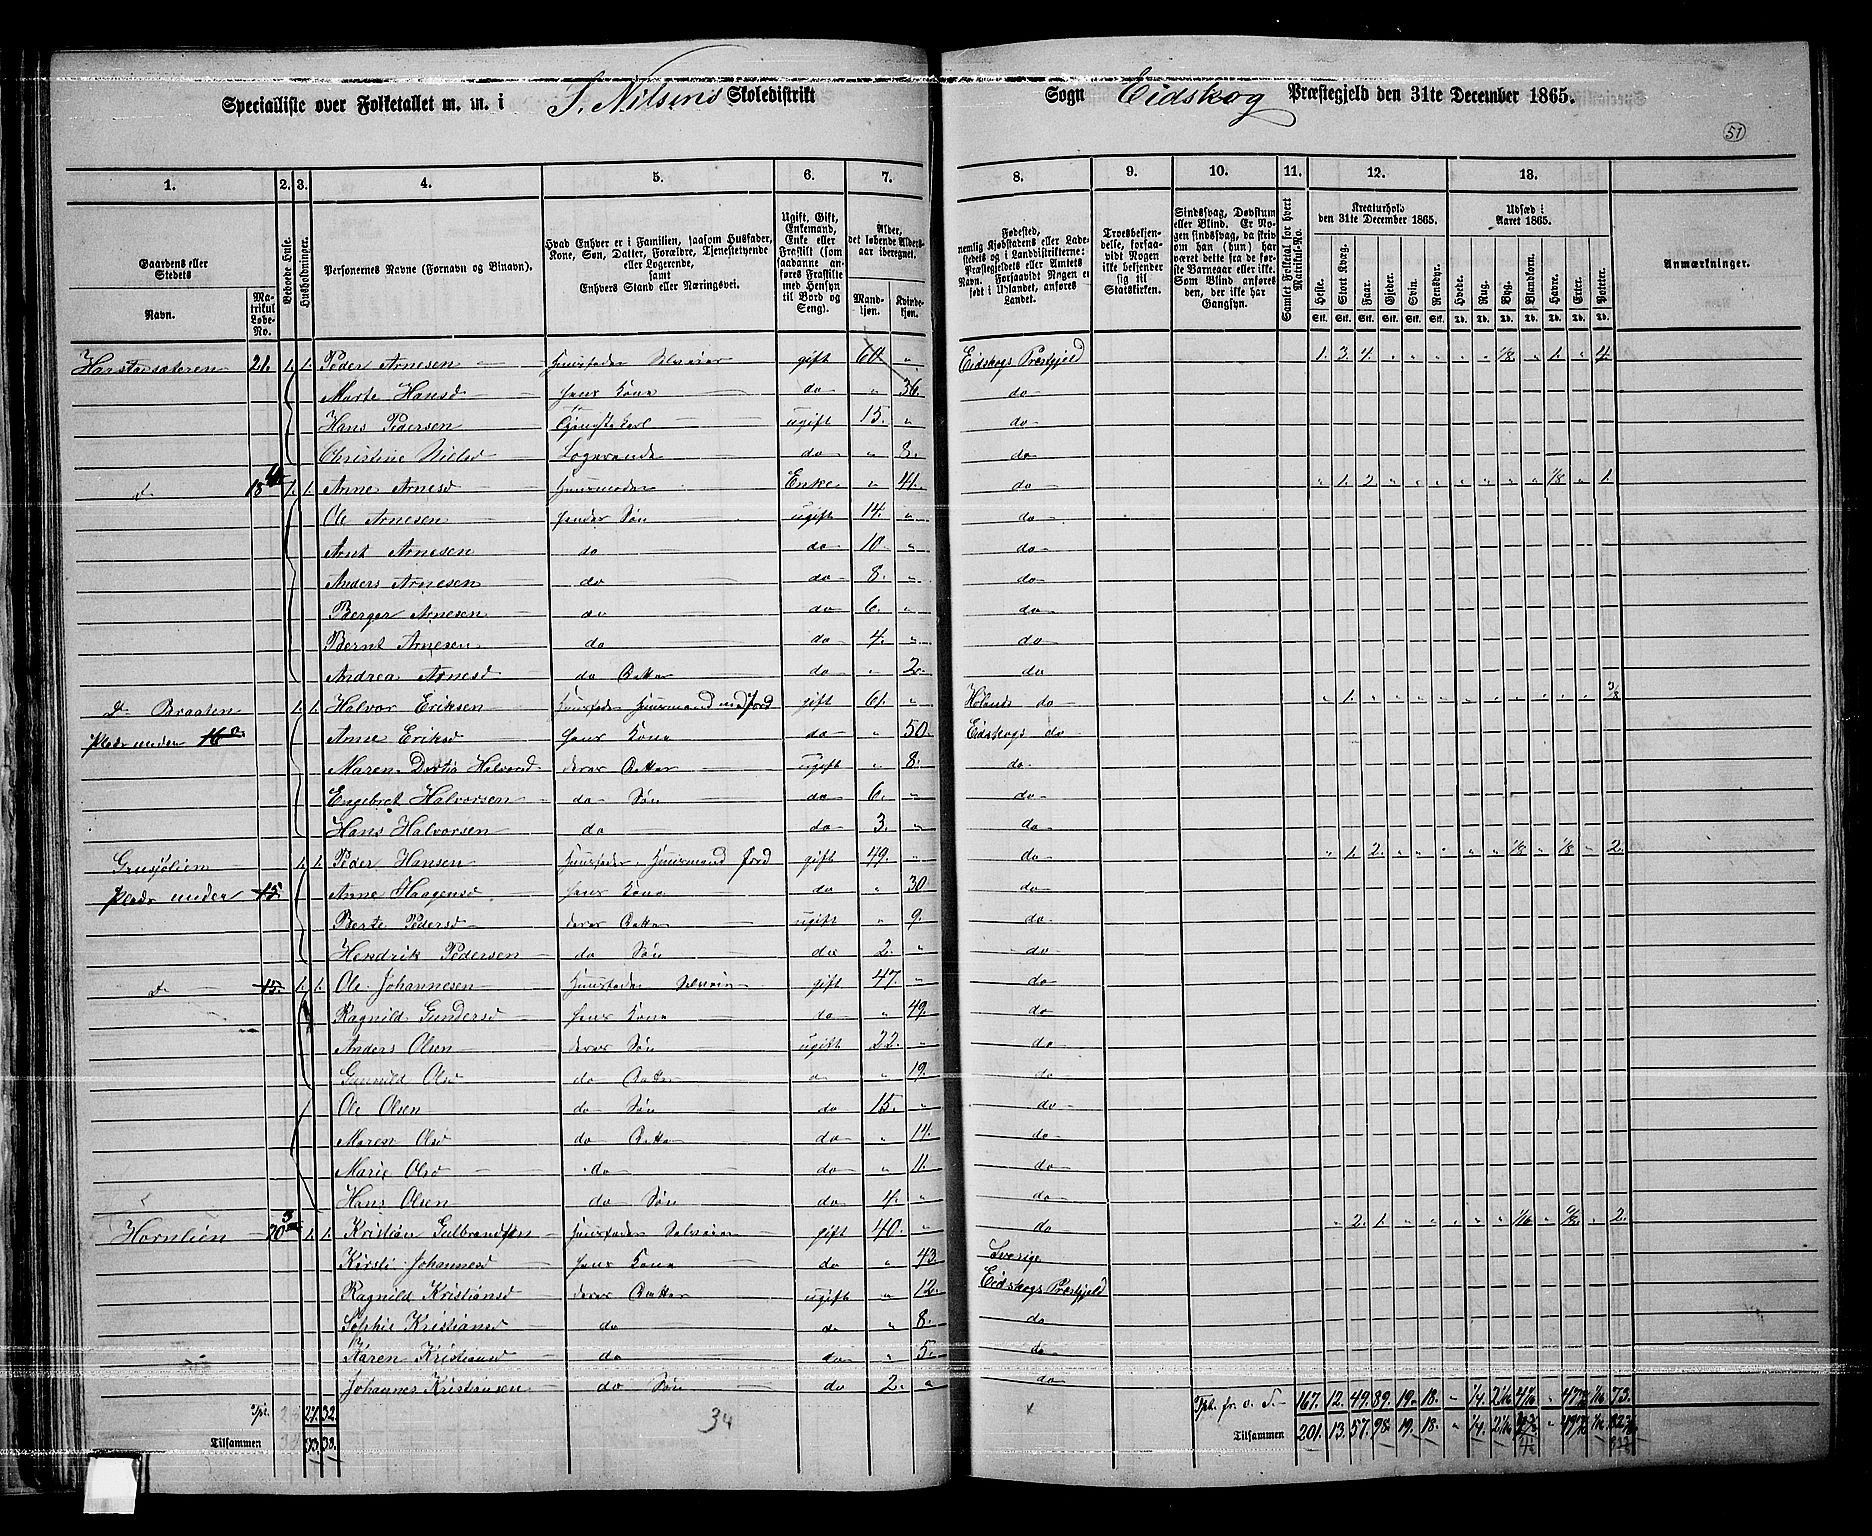 Specialliste over Folketallet m. m. i S. Nilsens Skoledistrikt Sogn Eidskog Præstegjeld den 31te December 1865.
51
1. 2. 3. 4. 5. 6. 7. 8. 9. 10. 11. 12. 13.
Gaardens eller Stedets
Navn.
Matrikul Løbe-No.
Beboede Huse.
Husholdninger.
Personernes Navne (Fornavn og Binavn).
Hvad Enhver er i Familien, saasom Husfader, Kone, Søn, Datter, Forældre, Tjenestetyende eller Logerende, samt Enhvers Stand eller Næringsvei.
Ugift, Gift, Enkemand, Enke eller Fraskilt (som saadanne anføres Fraskilte med Hensyn til Bord og Seng).
Alder, det løbende Aldersaar iberegnet.
Mandkjøn.
Kvindekjøn.
Fødested, nemlig Kjøbstadens eller Ladestedets og i Landdistrikterne: Præstegjeldets eller Amtets Navn. Forsaavidt Nogen er født i Udlandet, anføres Landet.
Troesbekjendelse, forsaavidt Nogen ikke bekjender sig til Statskirken.
Sindssvag, Døvstum eller Blind. Er Nogen sindssvag, da skrives om han (hun) har været dette fra de første Barneaar eller ikke. Som Blind anføres den, der ikke har Gangsyn.
Samlet Folketal for hvert Matrikul-No.
Kreaturhold den 31te December 1865.
Heste. Stort Kvæg. Faar. Gjeder. Svin. Rensdyr.
Udsæd i Aaret 1865.
Hvede. Rug. Byg. Blandkorn. Havre. Erter. Poteter.
Anmærkninger.
21. 1. 1. Peder Arnesen Huusfader Selveier gift 60 " Eidskogs Præstgjeld 1. 3. 4. " " " " " 1/8 " 1. " 4.
Marte Hansd hans Kone do " 36. do
Hans Pedersen Tjenestekarl ugift 15. " do
Christine Nilsd Logerende do " 8. do
d 18 1. 1. Anne Arnesd Huusmoder Enke " 41. do " 1. 2 " " " " " " " 1/8 " 1.
Ole Arnesen hendes Søn ugift 14. " do
Arnt Arnesen do do 10. " do
Anders Arnesen do do 8. " do
Berger Arnesen do do 6. " do
Bernt Arnesen do do 4. " do
Andrea Arnesd do Datter do " 2. do
d Braaten 1. 1. Halvor Eriksen Huusfader Huusmand med Jord gift 61. " Hølands do " 1. " " " " " " " " " " 3/8
Plads under 16 Anne Eriksd hans Kone do " 50. Eidskogs do
Maren Dortea Halvorsd deres Datter ugift " 8. do
Engebret Halvorsen do Søn do 6. " do
Hans Halvorsen do do 3. " do
1. 1. Peder Hansen Huusfader, Huusmand Jord gift 49. " do " 1. 2. " " " " " 1/8 " 1/8 " 2.
Plads under 15 Anne Haagensd hans Kone do " 30 do
Berte Pedersd deres Datter ugift " 9. do
Hendrik Pedersen do Søn do 2. " do
d 15. 1. 1. Ole Johannesen Huusfader Selveier gift 47. " do
Ragnild Gundersd hans Kone do " 49. do
Anders Olsen deres Søn ugift 22. " do
Gunnild Olsd do Datter " 19. do
Ole Olsen do Søn do 15. " do
Maren Olsd do Datter do " 14. do
Marie Olsd do do " 11. do
Hans Olsen do Søn do 4. " do
Hornlien 1. 1. Kristian Gulbrandsen Huusfader Selveier gift 40. " do " 2. 1. " " " " " 1/16 " " 2.
Kirsti Johannesd hans Kone do " 43. Sverige
Ragnild Kristiansd deres Datter ugift " 12. Eidskogs Præstgjeld
Sophie Kristiansd do do " 8. do
Karen Kristiansd do do " 5. do
Johannes Kristiansen do Søn do 2. " do
27. 32. 34 167. 12. 49. 89. 19. 18. 73.
Tilsammen Tilsammen 201. 13. 57. 98. 19. 18.